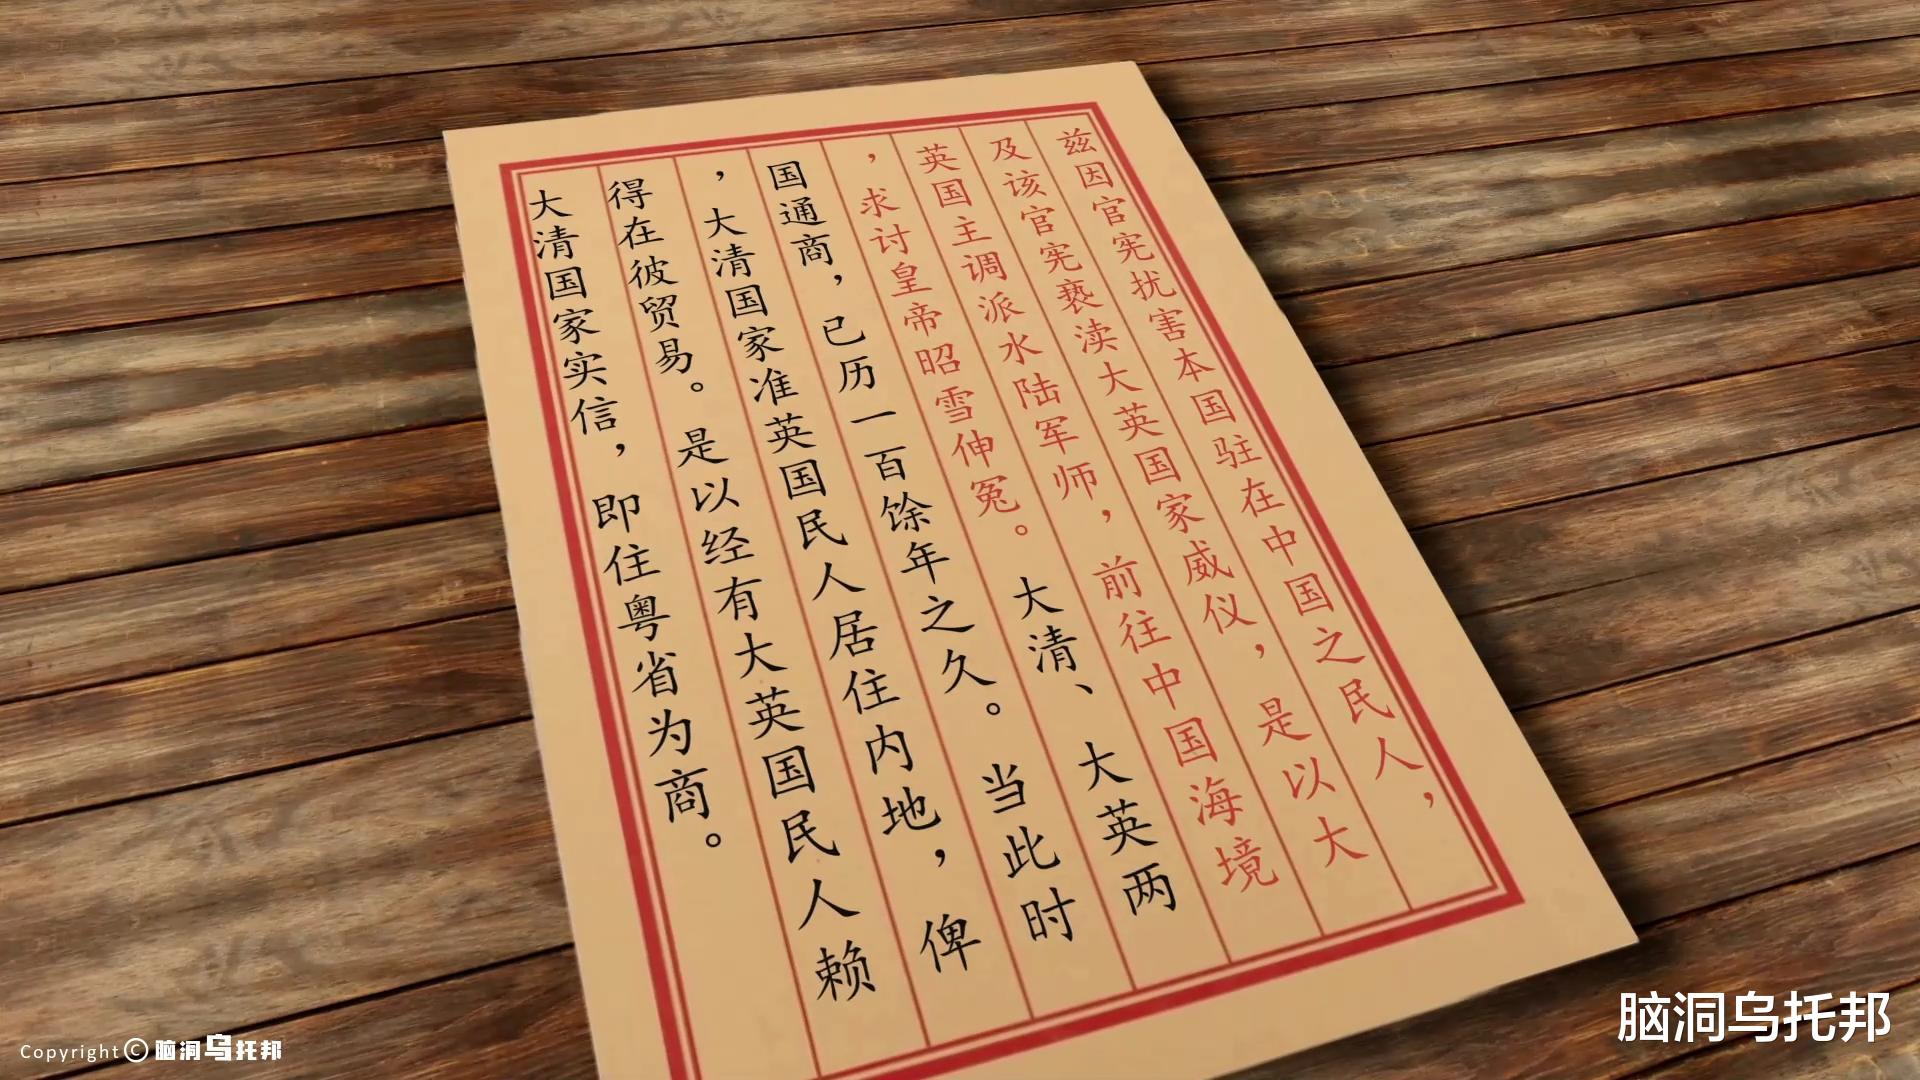 兹因官宪扰害本国驻在中国之民人，
及该官宪亵渎大英国家威仪，是以大
英国主调派水陆军师，前往中国海境
，求讨皇帝昭雪伸冤。大清、大英两
国通商，已历一百馀年之久。当此时
，大清国家准英国民人居住内地，俾
得在彼贸易。是以经有大英国民人赖
大清国家实信，即住粤省为商。
脑洞乌托邦
Copyright © 脑洞乌托邦